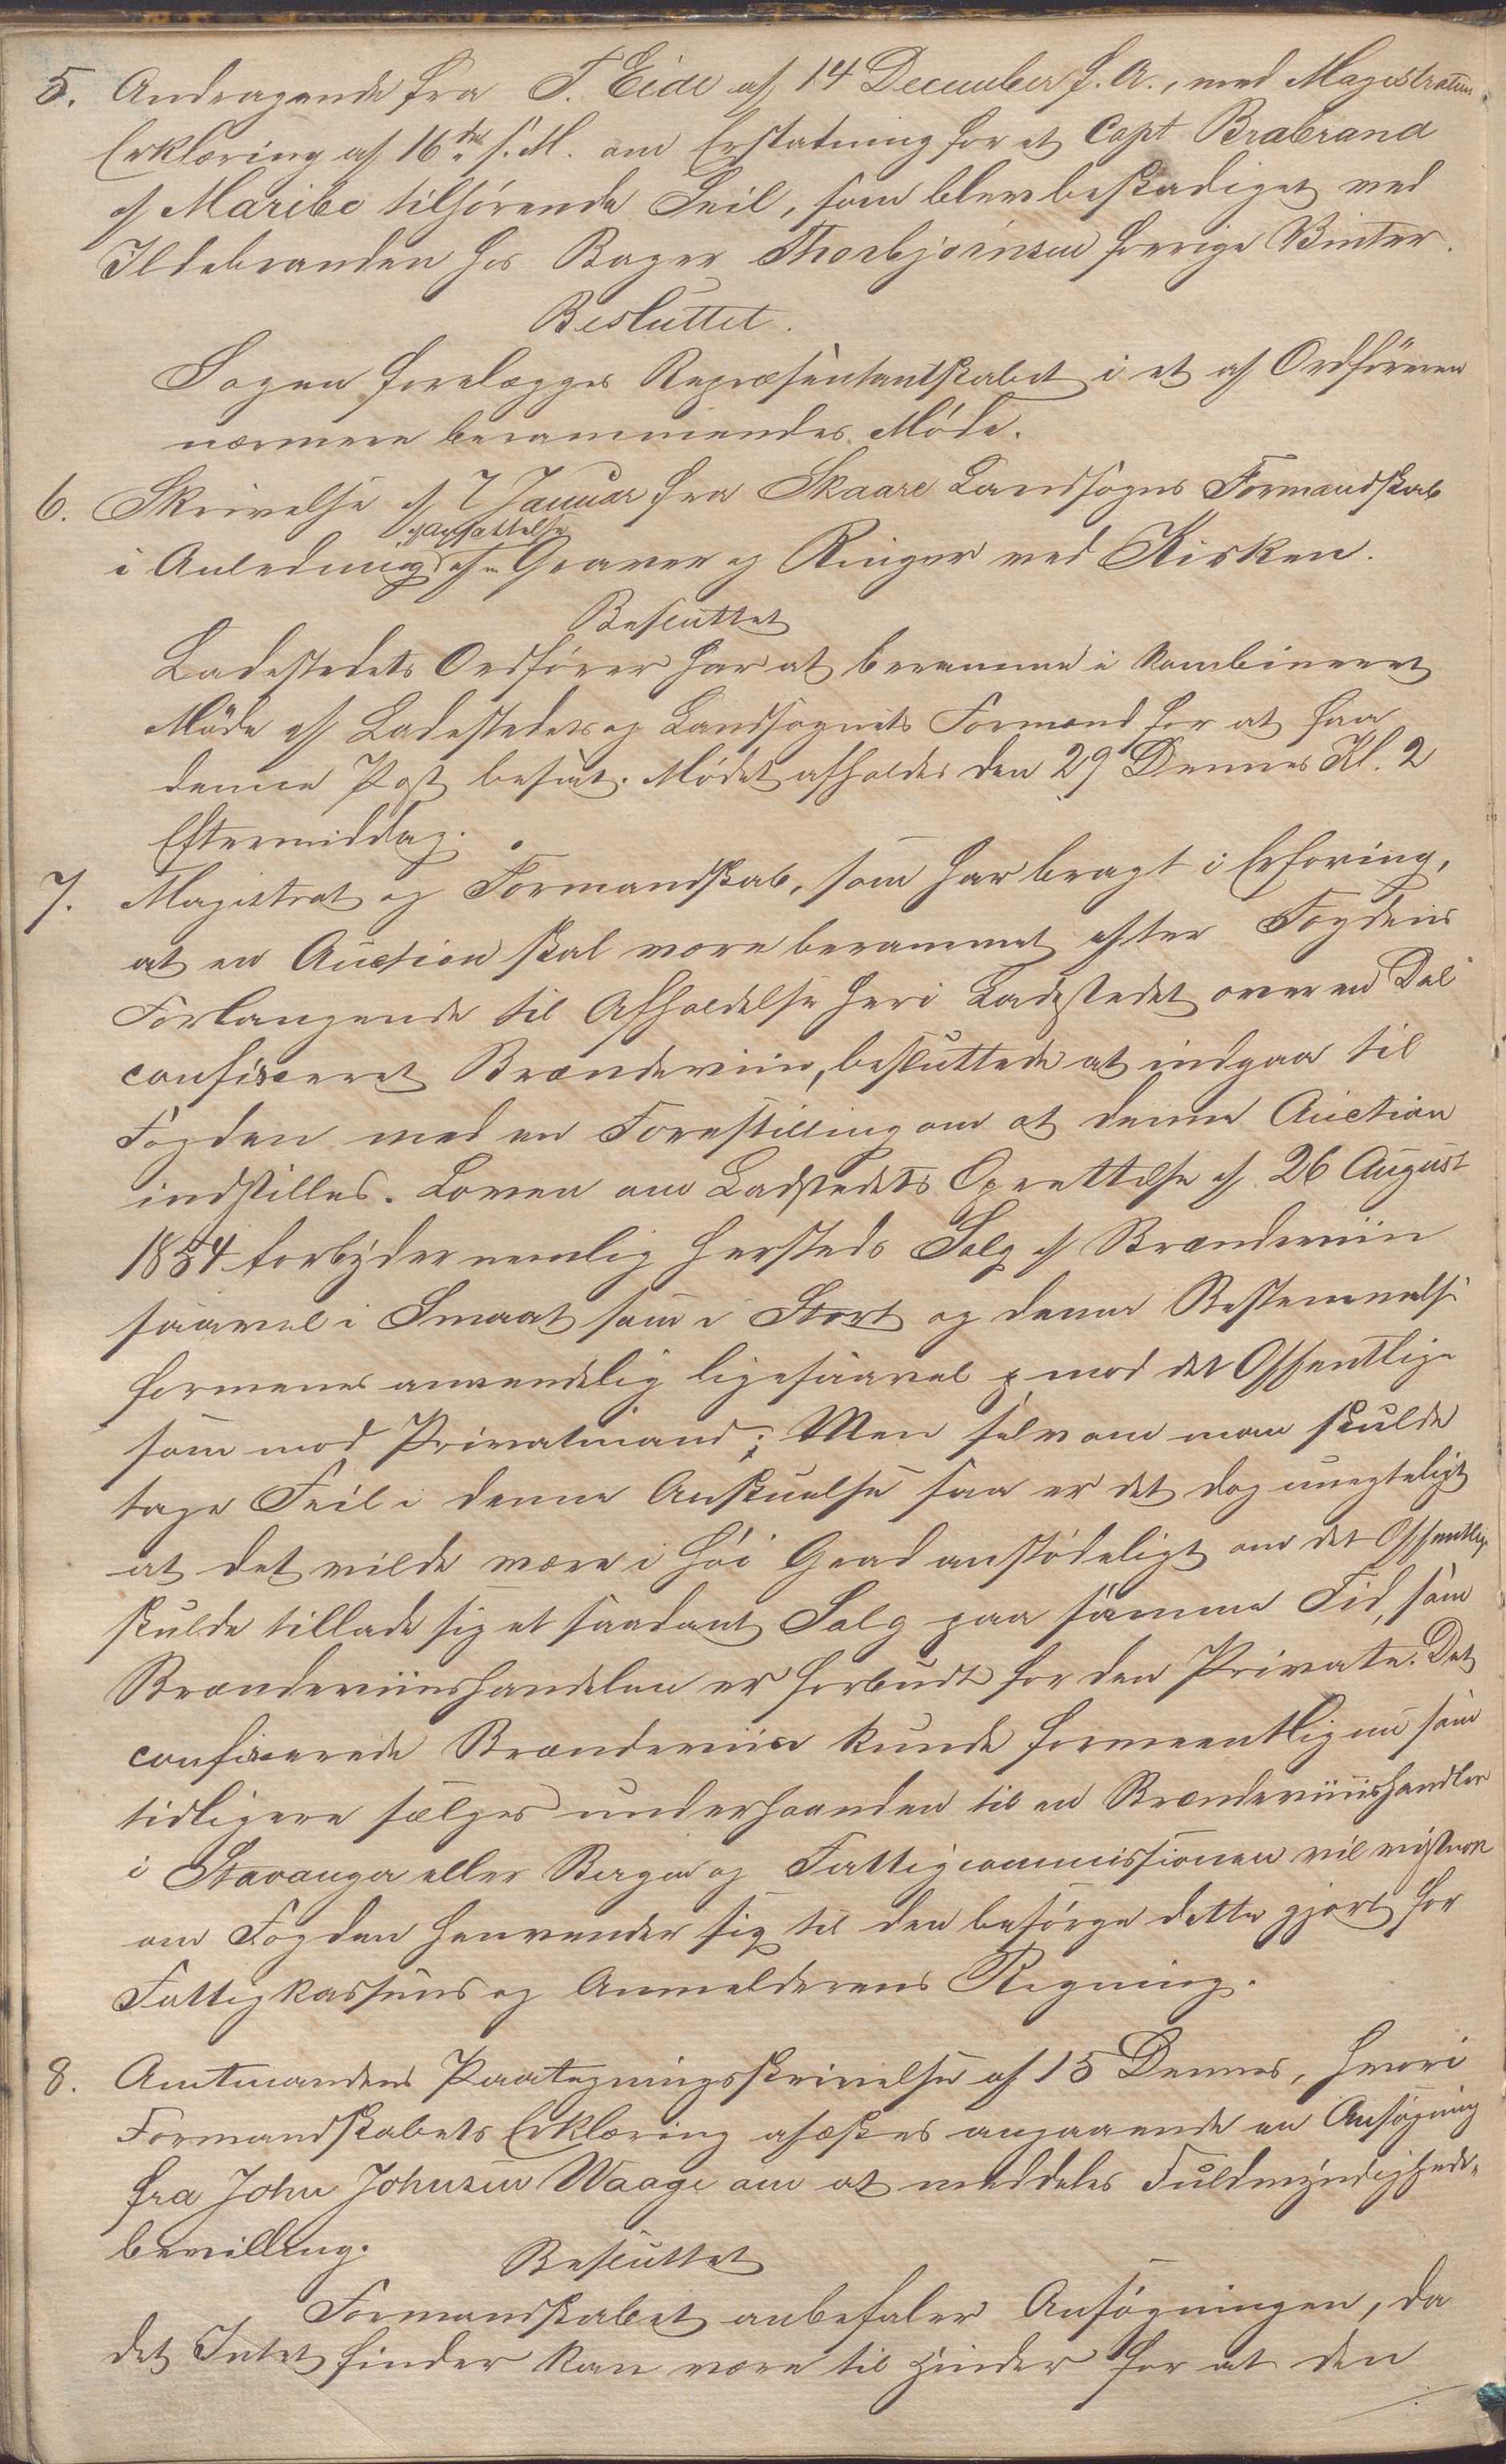 5. Andragende fra T. Eide af 14 December f. A., med Magistratens
Erklæring af 16de s. M. om Erstatning for et Capt Brabrand
af Maribo tilhørende Seil, som blev beskadiget ved
Ildebranden hos Bager Thorbjørnsen forrige Vinter.
Besluttet.
Sagen forelægges Repræsentantskabet i et af Ordføreren
nærmere berammendes Møde.
6. Skrivelse af 7 Januar fra Skaare Landsogns Formandskab
i Anledning af Graver og Ringer ved Kirken.
Besluttet
Ladestedets Ordfører har at beramme i kombineret
Møde af Ladestedets og Landsognets Formænd for at faa
denne Post besat. Mødet afholdes den 29 Dennes Kl. 2
Eftermiddag.
7. Magistrat og Formandskab, som har bragt i Erfaring,
at en Auction skal være berammet efter Fogdens
Forlangende til Afholdelse her i Ladestedet over en Del
confisceret Brændeviin, besluttede at indgaa til
Fogden med en Forestilling om at denne Auction
indstilles. Loven om Ladestedets Oprettelse af 26 August
1854 forbyder nemlig hersteds Salg af Brændeviin
saavel i Smaat som i Stort og denne Bestemmelse
formenes anvendelig ligesaavel mod det Offentlige
som mod Privatmand; Men selv om man skulde
tage Feil i denne Anskuelse saa er det dog unegteligt
at det vilde være i høi Grad anstødeligt om det Offentlige
skulde tillade sig et saadant Salg paa samme Tid, som
Brændeviinshandelen er forbudt for den Private. Det
confiscerede Brændeviin kunde formeentlig nu som
tidligere sælges underhaanden til en Brændeviinshandler
i Stavanger eller Bergen og Fattigcommissionen vil vistnok
om Fogden henvender sig til den besørge dette gjort for
Fattigkassens og Anmelderens Regning.
8. Amtmandens Paategningsskrivelse af 15 Dennes, hvori
Formandskabets Erklæring afæskes angaaende en Ansøgning
fra John Johnsen Waage om at meddeles Fuldmyndigheds-
bevilling.
Besluttet
Formandskabet anbefaler Ansøgningen, da
det Intet finder kan være til Hinder for at den